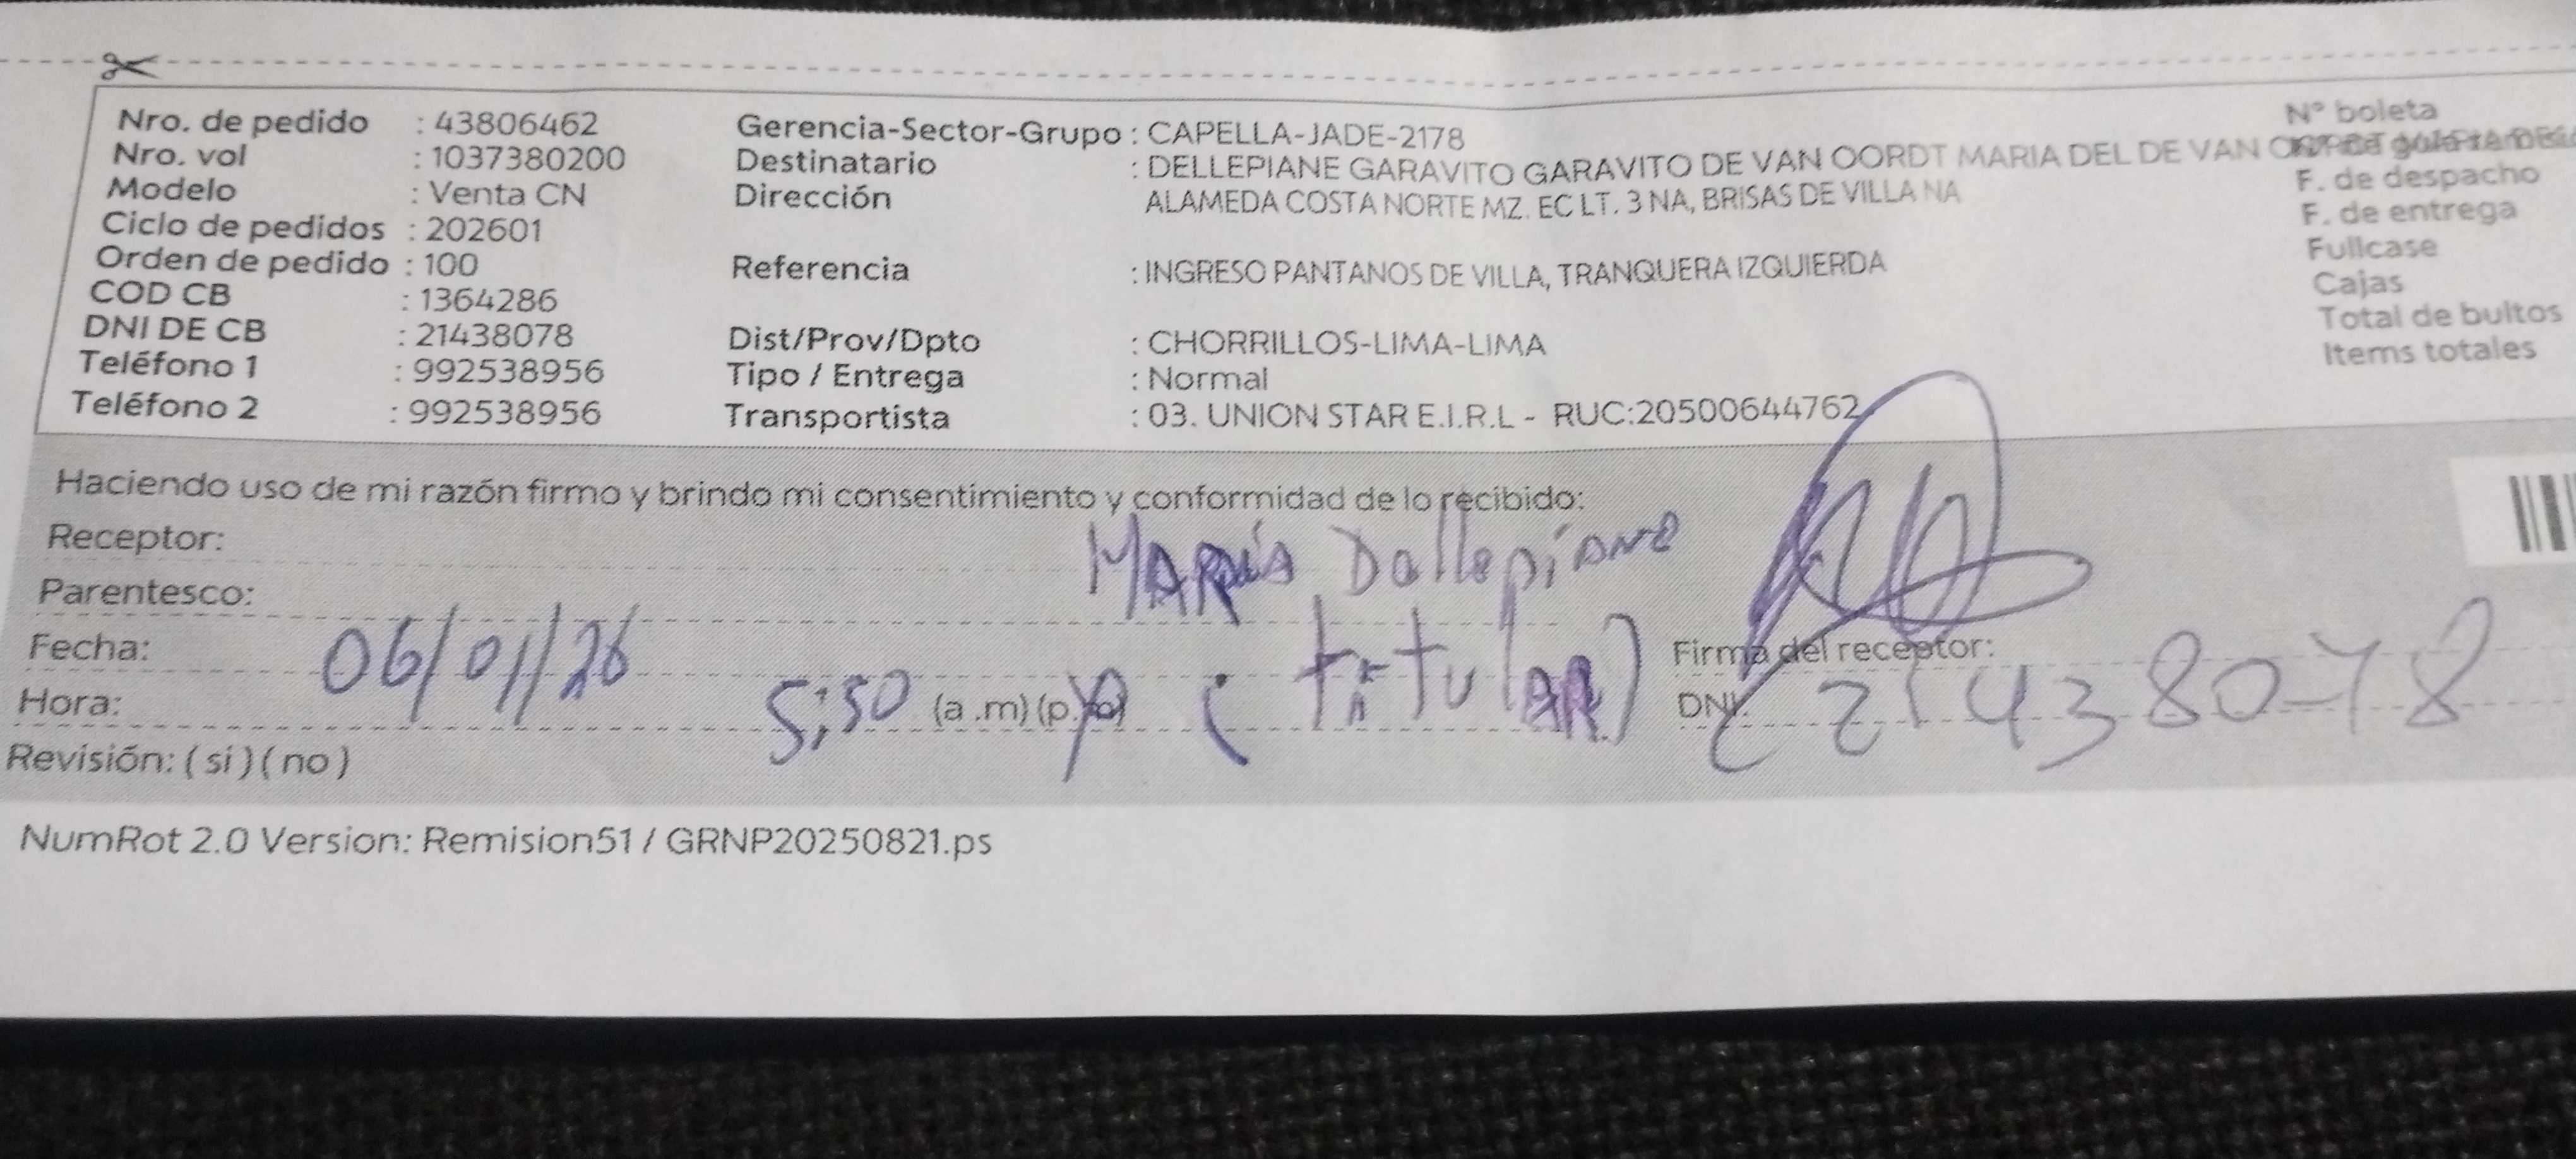 Nro. de pedido : 43806462
Nro. vol : 1037380200
Modelo : Venta CN
Ciclo de pedidos : 202601
Orden de pedido : 100
COD CB : 1364286
DNI DE CB : 21438078
Teléfono 1 : 992538956
Teléfono 2 : 992538956
Gerencia-Sector-Grupo : CAPELLA-JADE-2178
Destinatario : DELLEPIANE GARAVITO GARAVITO DE VAN OORDT MARIA DEL DE VAN
Dirección ALAMEDA COSTA NORTE MZ. EC LT. 3 NA, BRISAS DE VILLA NA
Referencia : INGRESO PANTANOS DE VILLA, TRANQUERA IZQUIERDA
Dist/Prov/Dpto : CHORRILLOS-LIMA-LIMA
Tipo / Entrega : Normal
Transportista : 03. UNION STAR E.I.R.L - RUC:20500644762
N° boleta
F. de despacho
F. de entrega
Fullcase
Cajas
Total de bultos
Items totales
Haciendo uso de mi razón firmo y brindo mi consentimiento y conformidad de lo recibido:
Receptor: MARÍA Dallepiane
Parentesco: (titular)
Fecha: 06/01/26
Hora: 5:50 (a .m) (p.m)
Firma del receptor:
DNI: 21438078
Revisión: ( si ) ( no )
NumRot 2.0 Version: Remision51 / GRNP20250821.ps